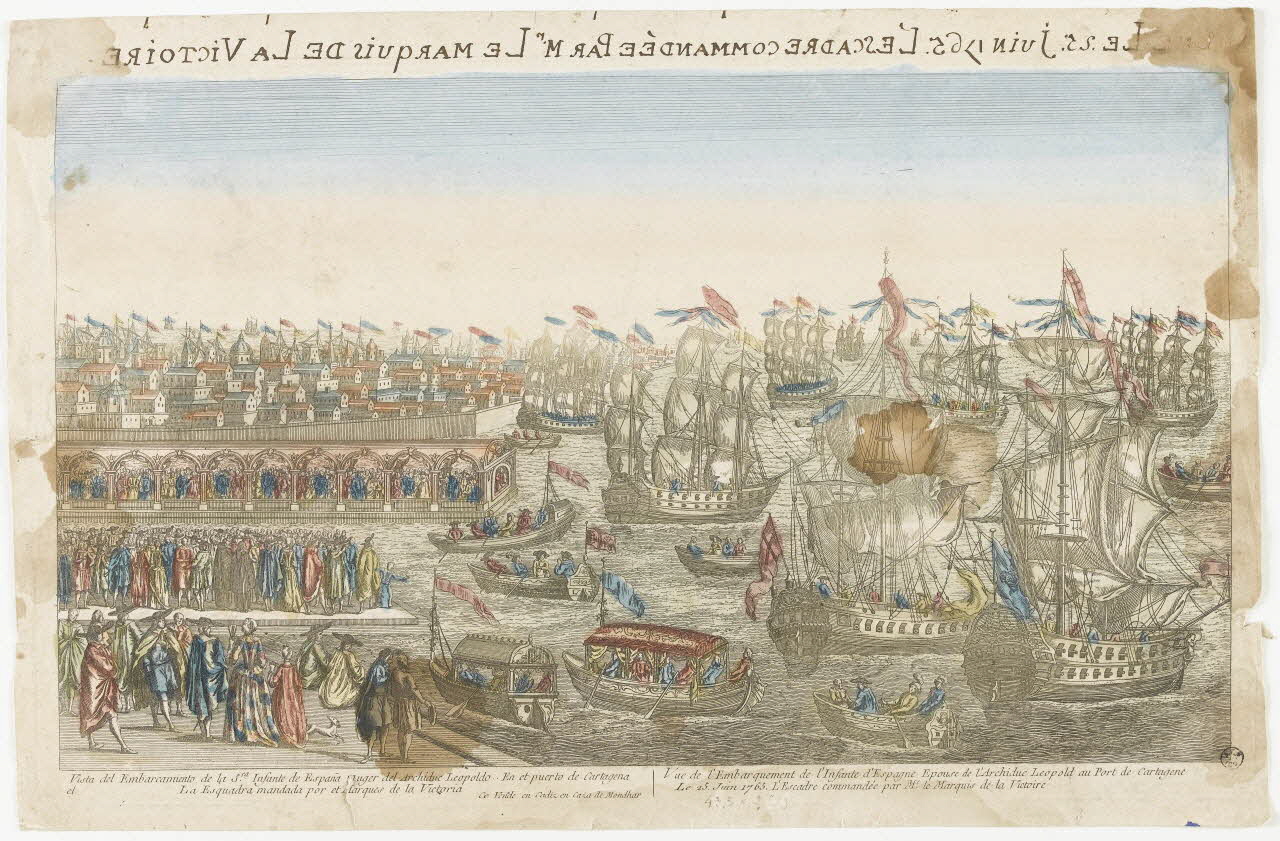 Le 25. Juin 1765. L'Escadre commandée par M.r Le Marquis de La Victoire
Vista del Embarcamiento de la S.ra Infante de España Muger del Archiduc Leopoldo. En et puerto de Cartagena
el La Esquadra mandada por et Marques de la Victoria
Ce Vende en Cadiz en Casa de Mondhar
Vue de l'Embarquement de l'Infante d'Espagne Epouse de l'Archiduc Leopold au Port de Cartagene
Le 15. Juin 1765. L'Escadre commandée par M.r le Marquis de la Victoire